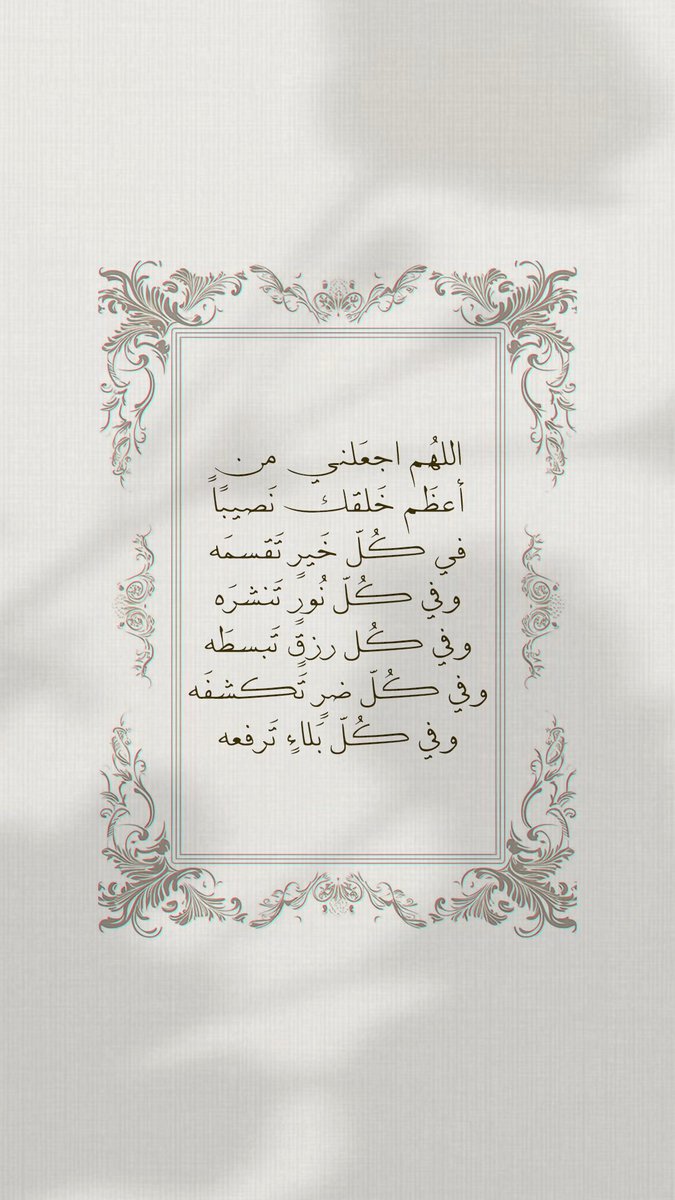 اللهُم اجعَلني من
أعظَم خَلقك نَصيبًاً
في كُلّ خَيرٍ تَقسمَه
وفي كُلّ نُورٍ تَنشرَه
وفي كُل رزقٍ تَبسطَه
وفي كُلّ ضرٍ تَكشفَه
وفي كُلّ بَلاءٍ تَرفعه